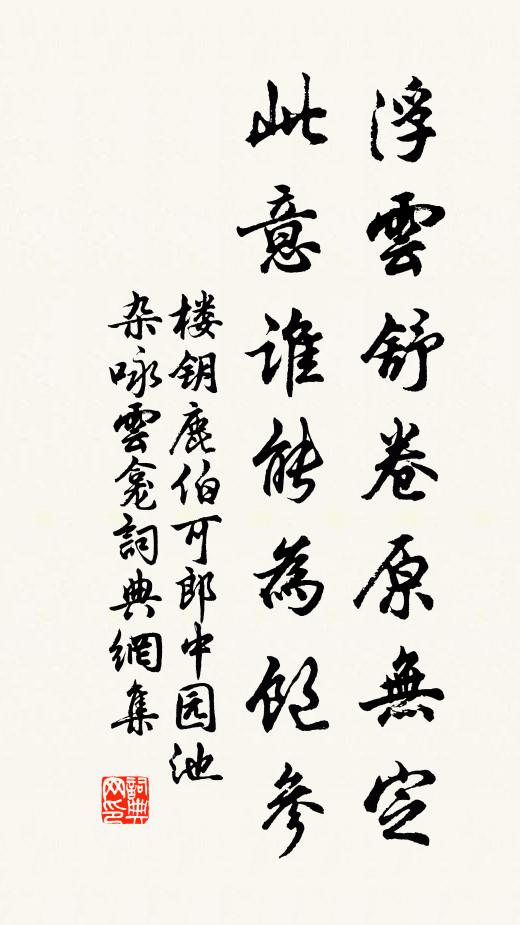 浮雲舒卷原無定
此意谁能為飽參
楼钥鹿伯可郎中园池
杂咏雲龛詞典網集
詞典网印